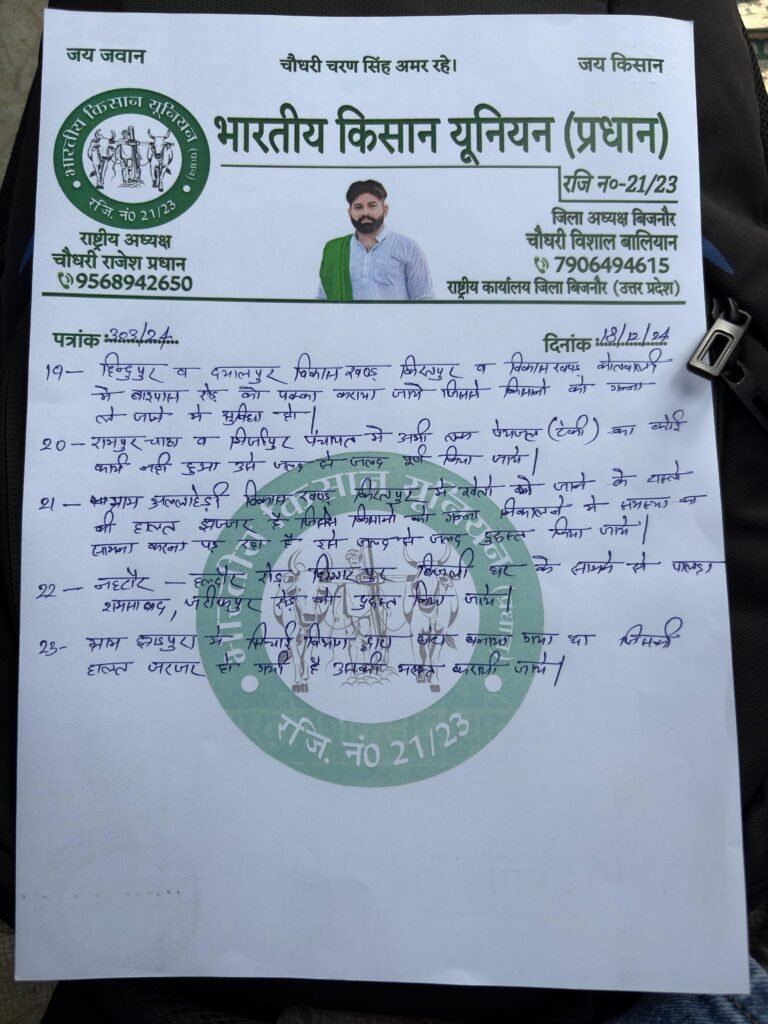 जय जवान
चौधरी चरण सिंह अमर रहे।
जय किसान
भारतीय किसान यूनियन (प्रधान)
भारतीय किसान यूनियन (प्रधान)
रजि. नं0 21/23
रजि न०-21/23
राष्ट्रीय अध्यक्ष
चौधरी राजेश प्रधान
9568942650
जिला अध्यक्ष बिजनौर
चौधरी विशाल बालियान
7906494615
राष्ट्रीय कार्यालय जिला बिजनौर (उत्तर प्रदेश)
पत्रांक 303/24
दिनांक 18/12/24
19- हिन्दुपुर व दयालपुर विकास खण्ड किरतपुर व विकास खण्ड कोतवाली
में बाइपास रोड को पक्का कराया जाये जिससे किसानो को गन्ना
ले जाने मे सुविधा हो।
20- रामपुर चाठा व मिर्जापुर पंचायत मे अभी तक पेयजल (टंकी) का कोई
कार्य नही हुआ उसे जल्द से जल्द पूर्ण किया जाये।
21- ग्राम विकास खण्ड किरतपुर मे खेतो को जाने के रास्ते
की हालत है जिससे किसानो को गन्ना निकालने मे समस्या का
सामना करना पड़ रहा है इसे जल्द से जल्द दुरुस्त किया जाये।
22- नहटौर - हल्दौर रोड बिजली घर के सामने से
रोड को दुरुस्त किया जाये।
23- ग्राम मे सिंचाई विभाग द्वारा बनाया गया था जिसकी
हालत जरजर हो गयी है उसकी मरम्मत करायी जाये।
भारतीय किसान यूनियन (प्रधान)
रजि. नं0 21/23